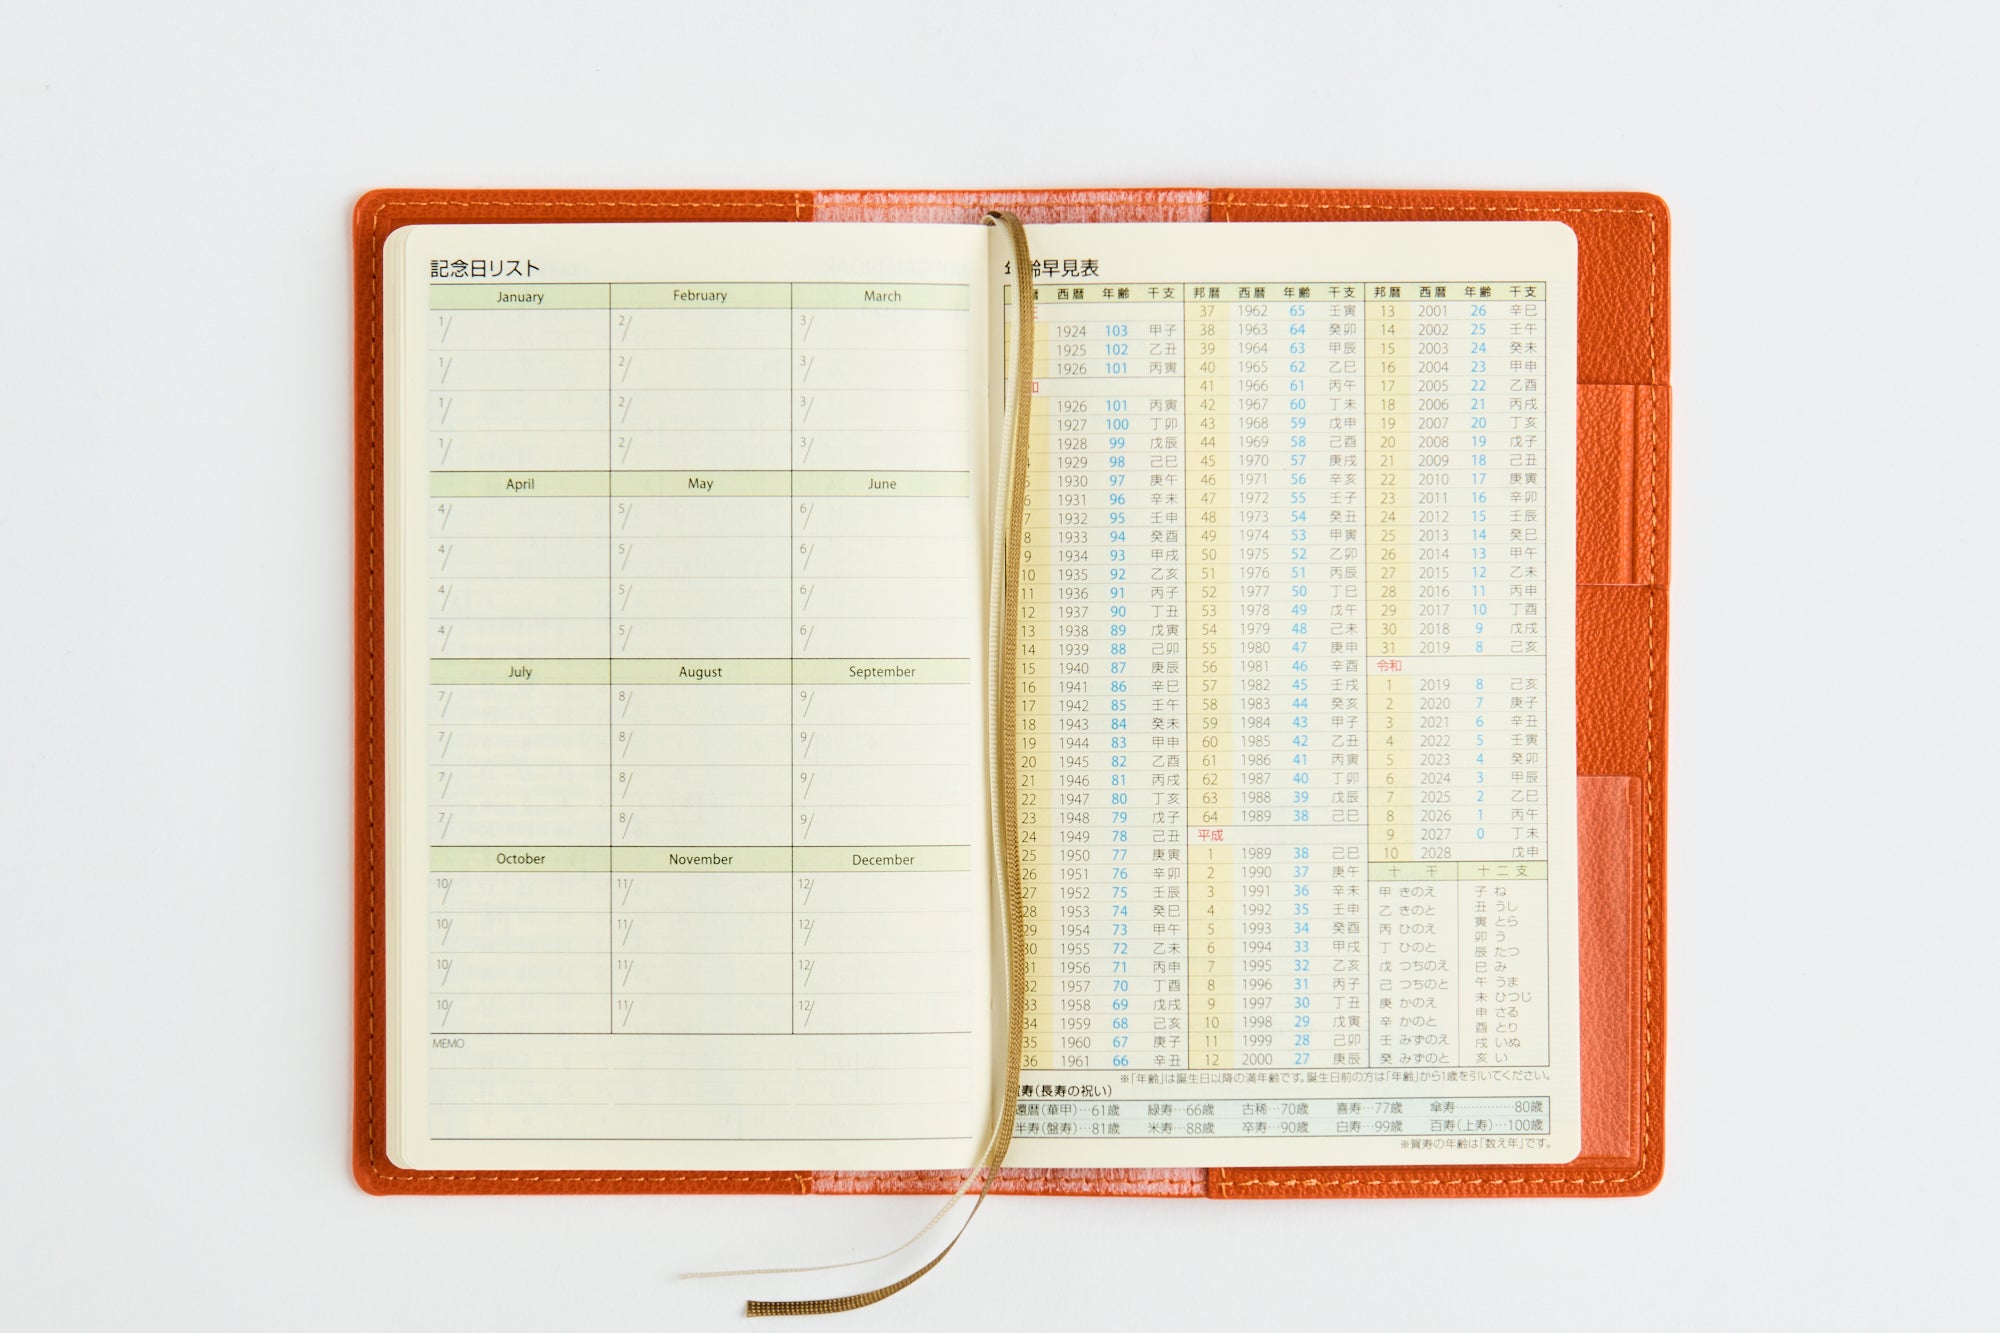 記念日リスト
January February March
1/ 2/ 3/
1/ 2/ 3/
1/ 2/ 3/
1/ 2/ 3/
April May June
4/ 5/ 6/
4/ 5/ 6/
4/ 5/ 6/
4/ 5/ 6/
July August September
7/ 8/ 9/
7/ 8/ 9/
7/ 8/ 9/
7/ 8/ 9/
October November December
10/ 11/ 12/
10/ 11/ 12/
10/ 11/ 12/
10/ 11/ 12/
MEMO
齢早見表
暦 西暦 年齢 干支
1924 103 甲子
1925 102 乙丑
1926 101 丙寅
和
1926 101 丙寅
1927 100 丁卯
1928 99 戊辰
1929 98 己巳
1930 97 庚午
6 1931 96 辛未
7 1932 95 壬申
8 1933 94 癸酉
9 1934 93 甲戌
10 1935 92 乙亥
11 1936 91 丙子
12 1937 90 丁丑
13 1938 89 戊寅
14 1939 88 己卯
15 1940 87 庚辰
16 1941 86 辛巳
17 1942 85 壬午
18 1943 84 癸未
19 1944 83 甲申
20 1945 82 乙酉
21 1946 81 丙戌
22 1947 80 丁亥
23 1948 79 戊子
24 1949 78 己丑
25 1950 77 庚寅
26 1951 76 辛卯
27 1952 75 壬辰
28 1953 74 癸巳
29 1954 73 甲午
30 1955 72 乙未
31 1956 71 丙申
32 1957 70 丁酉
33 1958 69 戊戌
34 1959 68 己亥
35 1960 67 庚子
36 1961 66 辛丑
邦暦 西暦 年齢 干支
37 1962 65 壬寅
38 1963 64 癸卯
39 1964 63 甲辰
40 1965 62 乙巳
41 1966 61 丙午
42 1967 60 丁未
43 1968 59 戊申
44 1969 58 己酉
45 1970 57 庚戌
46 1971 56 辛亥
47 1972 55 壬子
48 1973 54 癸丑
49 1974 53 甲寅
50 1975 52 乙卯
51 1976 51 丙辰
52 1977 50 丁巳
53 1978 49 戊午
54 1979 48 己未
55 1980 47 庚申
56 1981 46 辛酉
57 1982 45 壬戌
58 1983 44 癸亥
59 1984 43 甲子
60 1985 42 乙丑
61 1986 41 丙寅
62 1987 40 丁卯
63 1988 39 戊辰
64 1989 38 己巳
平成
1 1989 38 己巳
2 1990 37 庚午
3 1991 36 辛未
4 1992 35 壬申
5 1993 34 癸酉
6 1994 33 甲戌
7 1995 32 乙亥
8 1996 31 丙子
9 1997 30 丁丑
10 1998 29 戊寅
11 1999 28 己卯
12 2000 27 庚辰
邦暦 西暦 年齢 干支
13 2001 26 辛巳
14 2002 25 壬午
15 2003 24 癸未
16 2004 23 甲申
17 2005 22 乙酉
18 2006 21 丙戌
19 2007 20 丁亥
20 2008 19 戊子
21 2009 18 己丑
22 2010 17 庚寅
23 2011 16 辛卯
24 2012 15 壬辰
25 2013 14 癸巳
26 2014 13 甲午
27 2015 12 乙未
28 2016 11 丙申
29 2017 10 丁酉
30 2018 9 戊戌
31 2019 8 己亥
令和
1 2019 8 己亥
2 2020 7 庚子
3 2021 6 辛丑
4 2022 5 壬寅
5 2023 4 癸卯
6 2024 3 甲辰
7 2025 2 乙巳
8 2026 1 丙午
9 2027 0 丁未
10 2028 戊申
十干
甲 きのえ
乙 きのと
丙 ひのえ
丁 ひのと
戊 つちのえ
己 つちのと
庚 かのえ
辛 かのと
壬 みずのえ
癸 みずのと
十二支
子 ね
丑 うし
寅 とら
卯 う
辰 たつ
巳 み
午 うま
未 ひつじ
申 さる
酉 とり
戌 いぬ
亥 い
※「年齢」は誕生日以降の満年齢です。誕生日前の方は「年齢」から1歳を引いてください。
寿(長寿の祝い)
還暦(華甲)…61歳 緑寿…66歳 古稀…70歳 喜寿…77歳 傘寿…………80歳
半寿(盤寿)…81歳 米寿…88歳 卒寿…90歳 白寿…99歳 百寿(上寿)…100歳
※賀寿の年齢は「数え年」です。